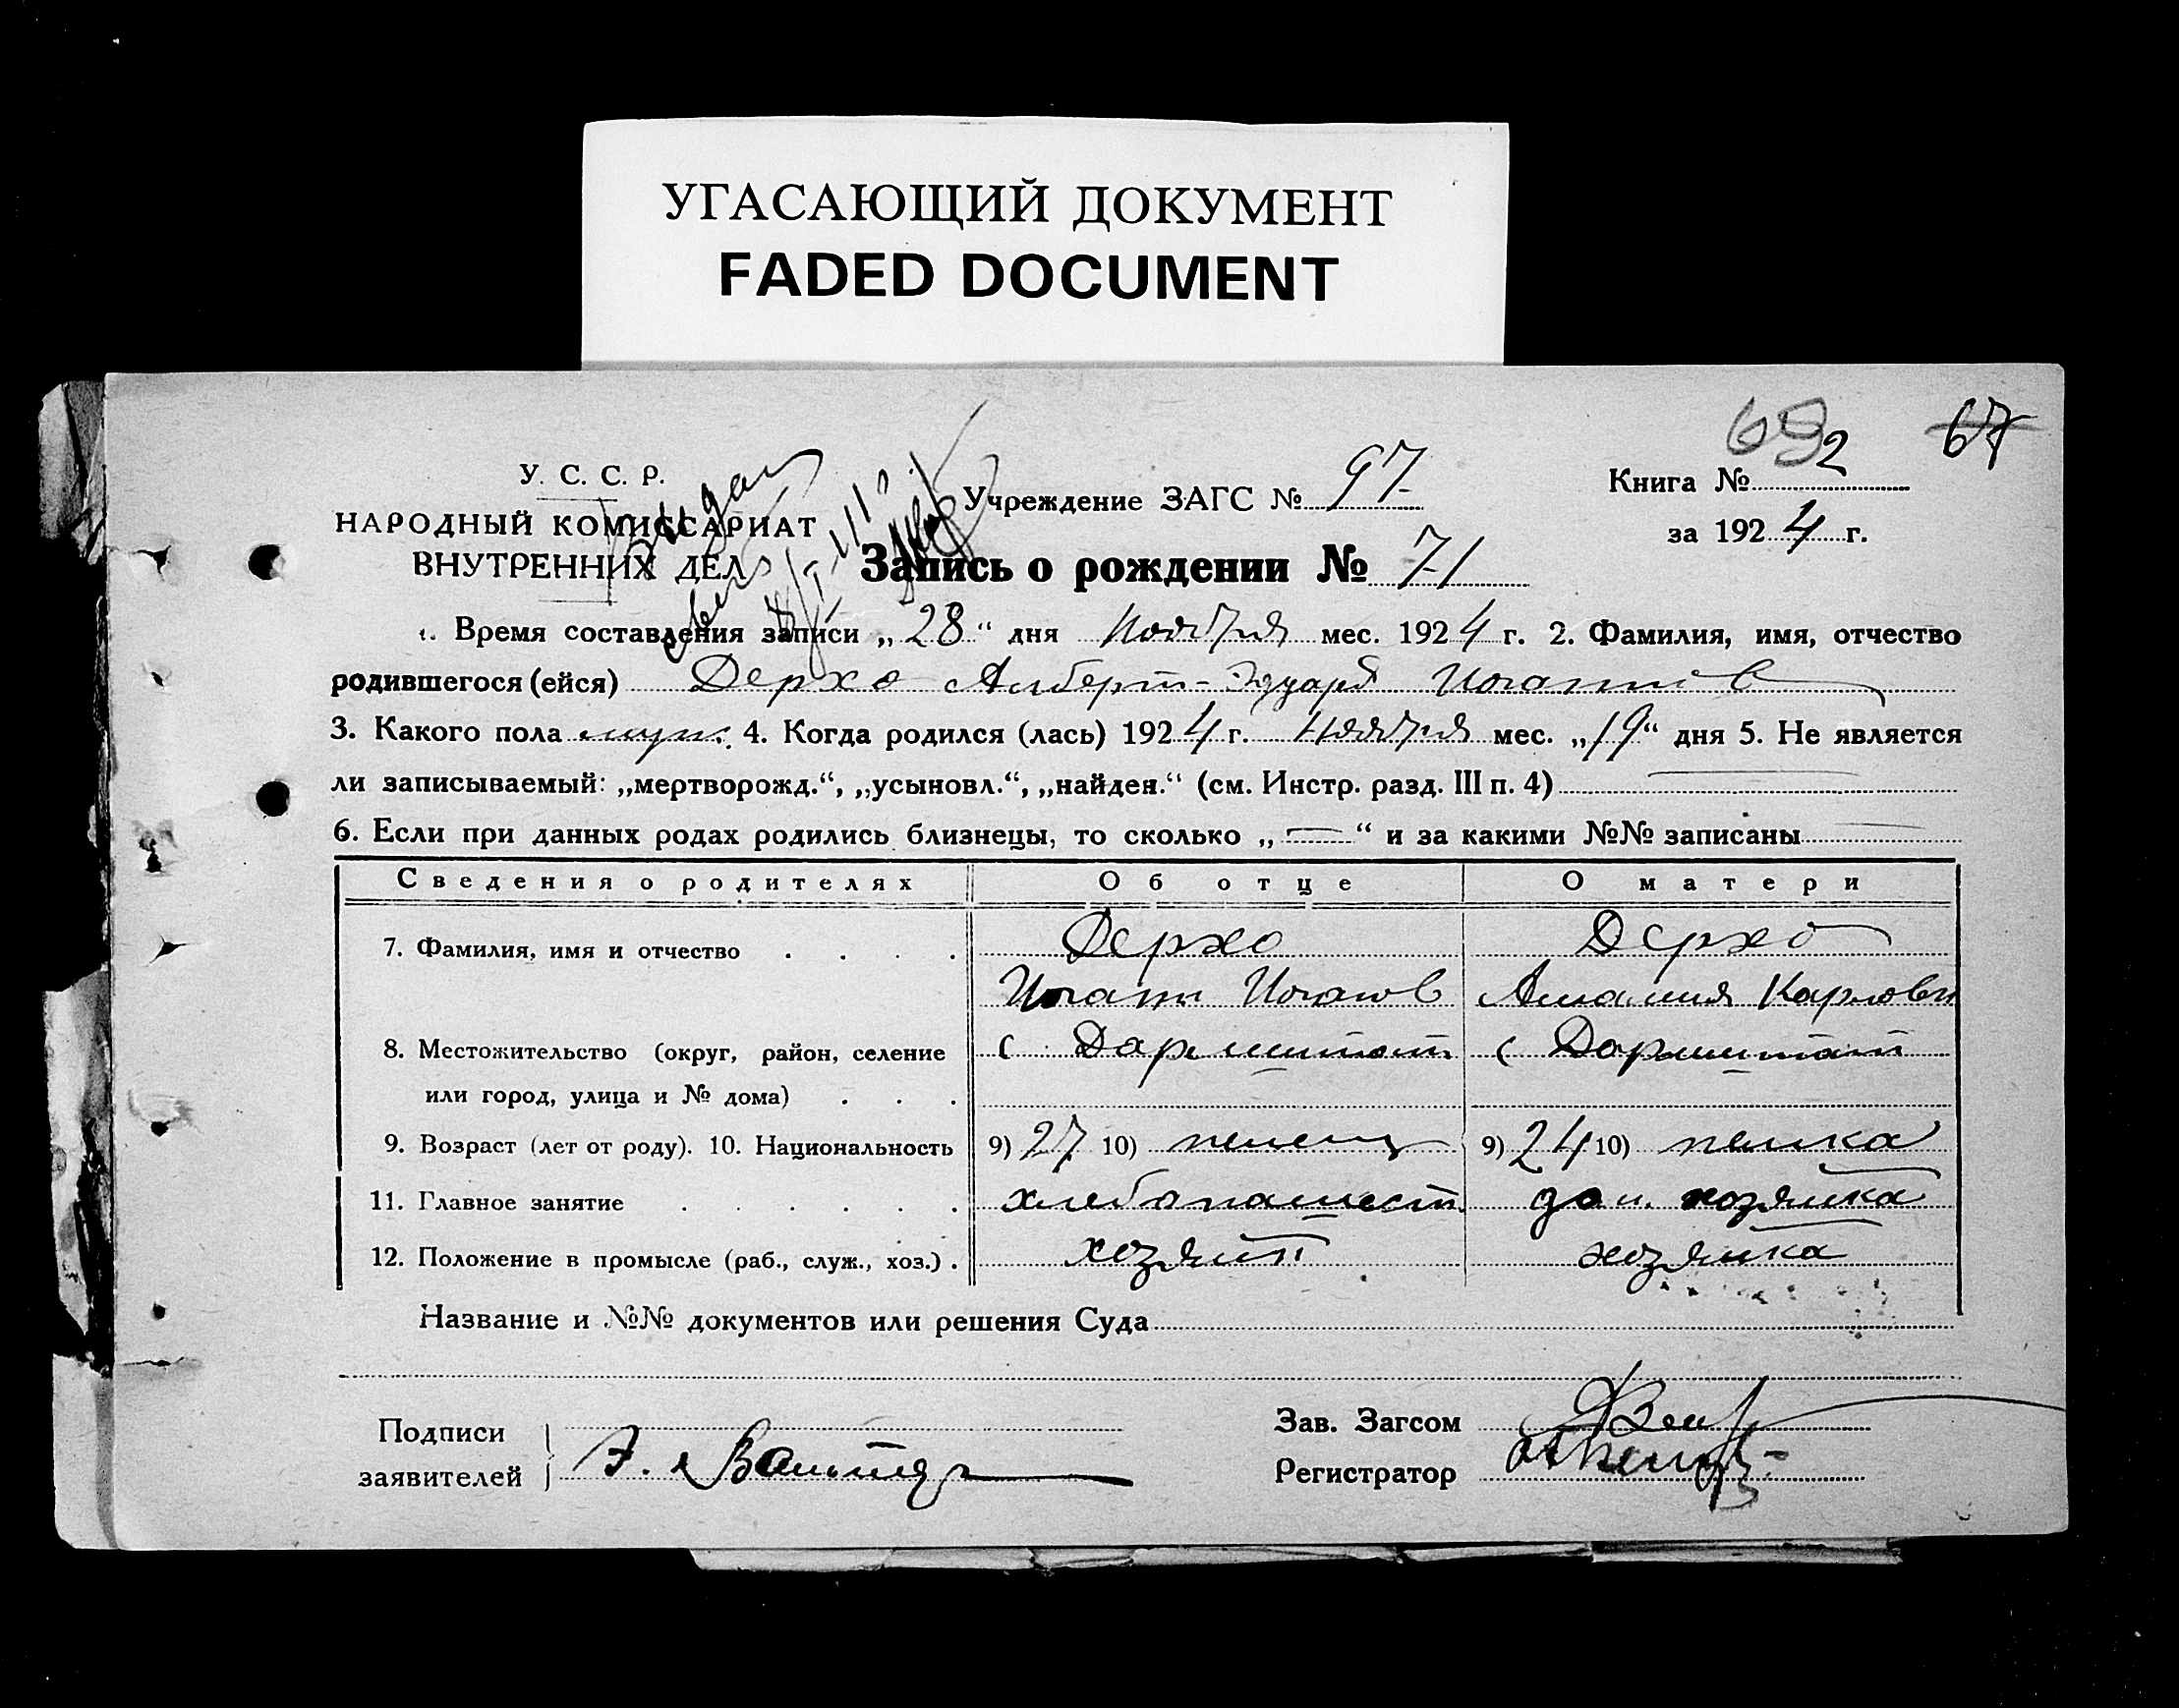 УГАСАЮЩИЙ ДОКУМЕНТ
FADED DOCUMENT
69 67
У. С. С. Р.
НАРОДНЫЙ КОМИССАРИАТ
ВНУТРЕННИХ ДЕЛ
Учреждение ЗАГС № 97
Книга № 2
за 1924 г.
Запись о рождении № 71
1. Время составления записи „28“ дня Ноября мес. 1924 г. 2. Фамилия, имя, отчество
родившегося (ейся) Дерхо Альберт-Эдуард Иоганнов
3. Какого пола муж. 4. Когда родился (лась) 1924 г. Ноября мес. „19“ дня 5. Не является
ли записываемый: „мертворожд.“, „усыновл.“, „найден.“ (см. Инстр. разд. III п. 4) —
6. Если при данных родах родились близнецы, то сколько „—“ и за какими №№ записаны —
Сведения о родителях Об отце О матери
7. Фамилия, имя и отчество . . . . Дерхо Дерхо
Иоганн Иоганов Амалия Карловн
8. Местожительство (округ, район, селение с Дармштат с Дармштат
или город, улица и № дома) . . .
9. Возраст (лет от роду). 10. Национальность 9) 27 10) немец 9) 24 10) немка
11. Главное занятие . . . . . . хлебопашест. дом. хозяйка
12. Положение в промысле (раб., служ., хоз.) . хозяин хозяйка
Название и №№ документов или решения Суда
Подписи
заявителей
Зав. Загсом
Регистратор